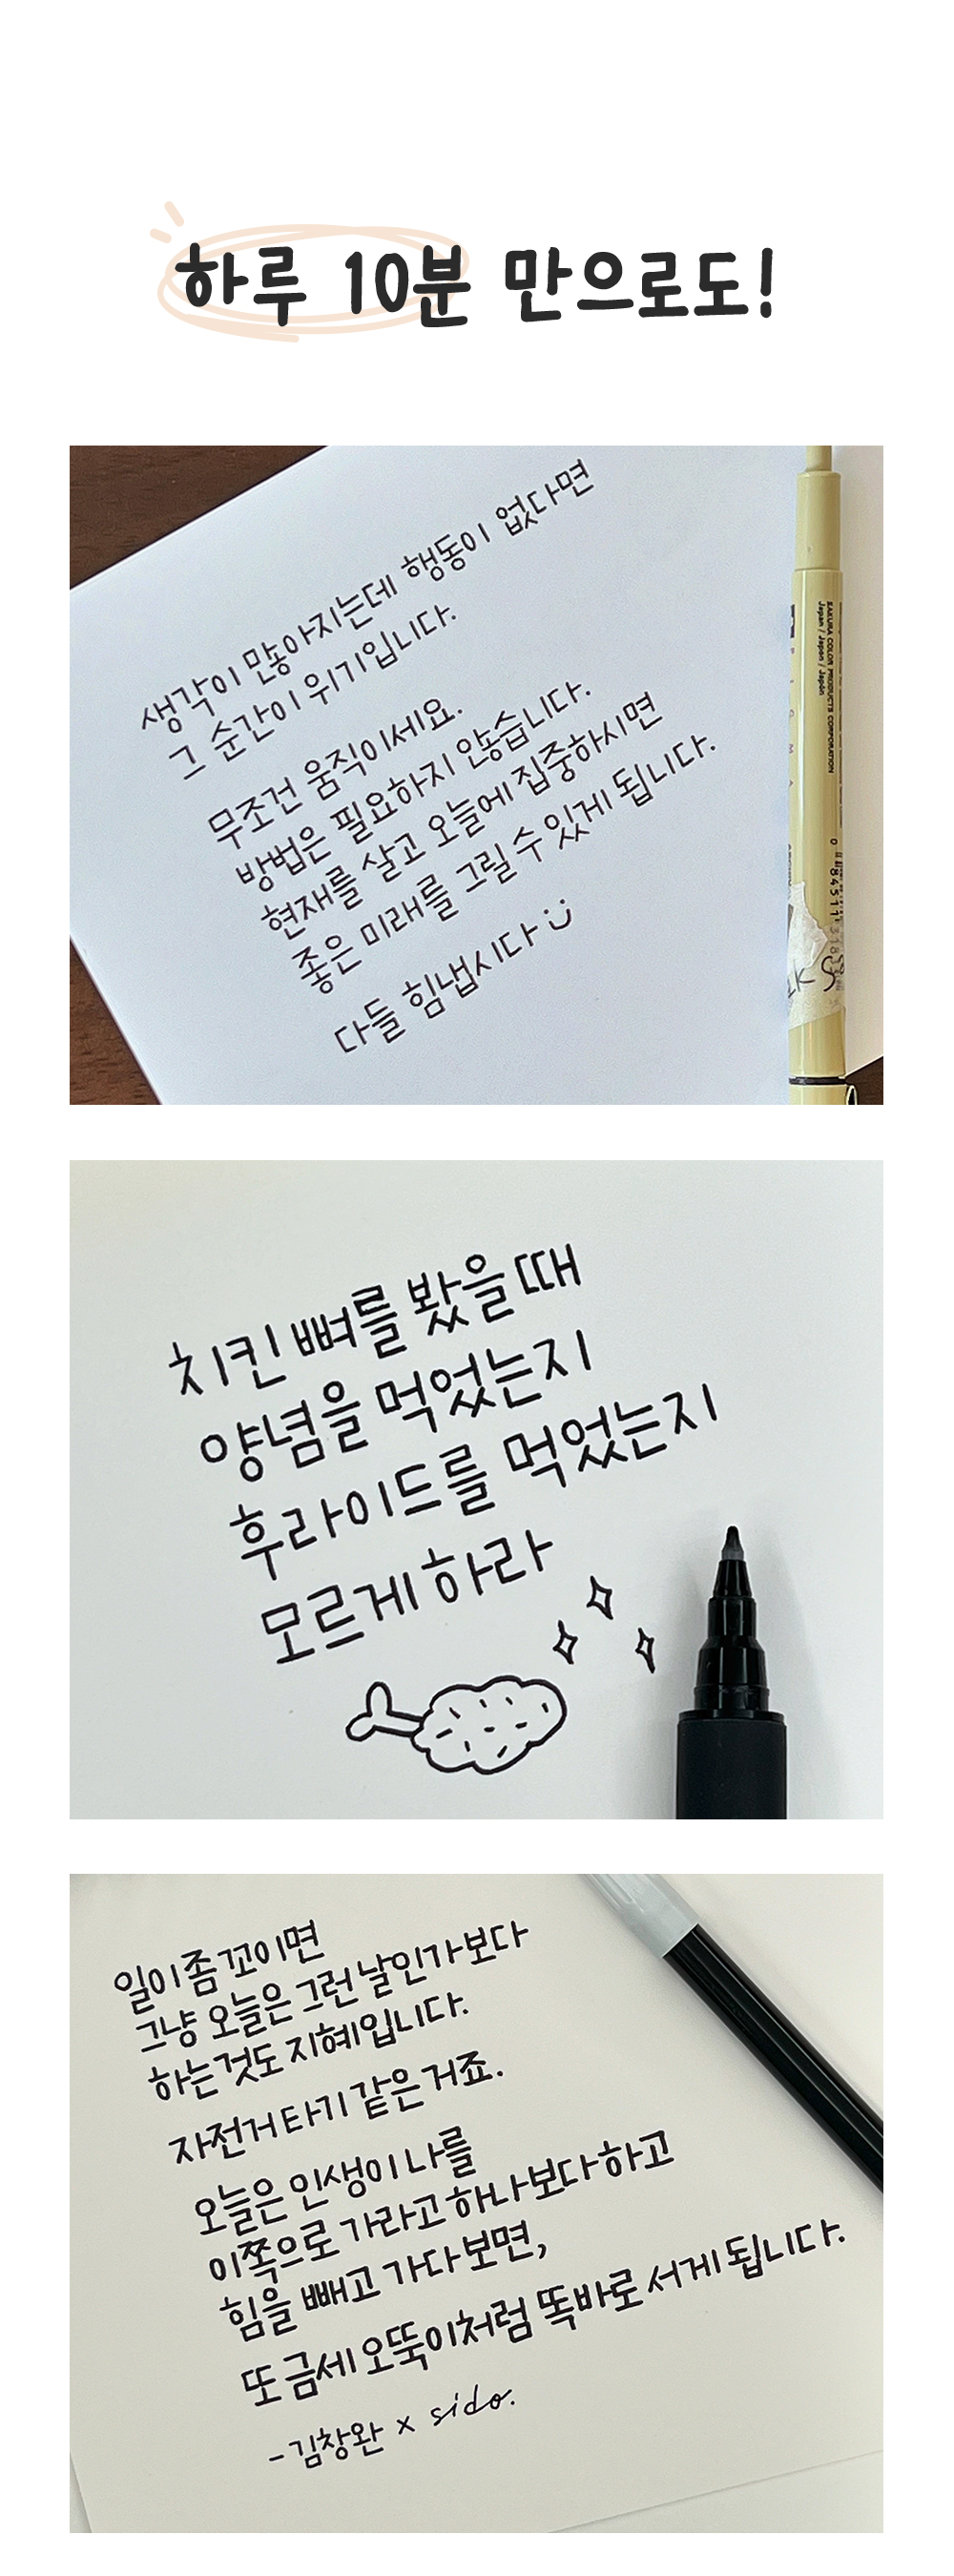 하루 10분 만으로도!
생각이 많아지는데 행동이 없다면
그 순간이 위기입니다.
무조건 움직이세요.
방법은 필요하지 않습니다.
현재를 살고 오늘에 집중하시면
좋은 미래를 그릴 수 있게 됩니다.
다들 힘냅시다
SAKURA COLOR PRODUCTS CORPORATION
Japan / Japon / Japón
치킨 뼈를 봤을 때
양념을 먹었는지
후라이드를 먹었는지
모르게 하라
일이 좀 꼬이면
그냥 오늘은 그런 날인가보다
하는것도 지혜입니다.
자전거 타기 같은거죠.
오늘은 인생이 나를
이쪽으로 가라고 하나보다 하고
힘을 빼고 가다보면,
또 금세 오뚝이처럼 똑바로 서게 됩니다.
-김창완 x sido.